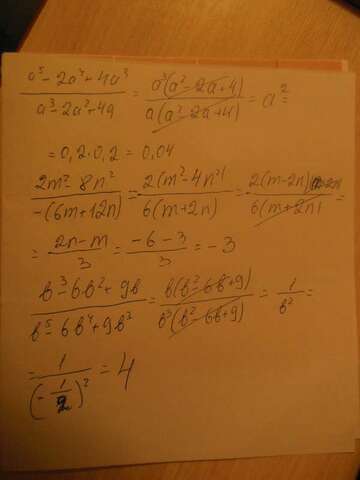 (a⁵ - 2a⁴ + 4a³)/(a³ - 2a² + 4a) = a³(a² - 2a + 4)/a(a² - 2a + 4) = a² =
= 0,2 · 0,2 = 0,04
(2m² - 8n²)/-(6m + 12n) = 2(m² - 4n²)/6(m + 2n) = 2(m - 2n)/6(m + 2n) =
= (2n - m)/3 = (-6 - 3)/3 = -3
(b³ - 6b² + 9b)/(b⁵ - 6b⁴ + 9b³) = b(b² - 6b + 9)/b³(b² - 6b + 9) = 1/b² =
= 1/(-1/2)² = 4